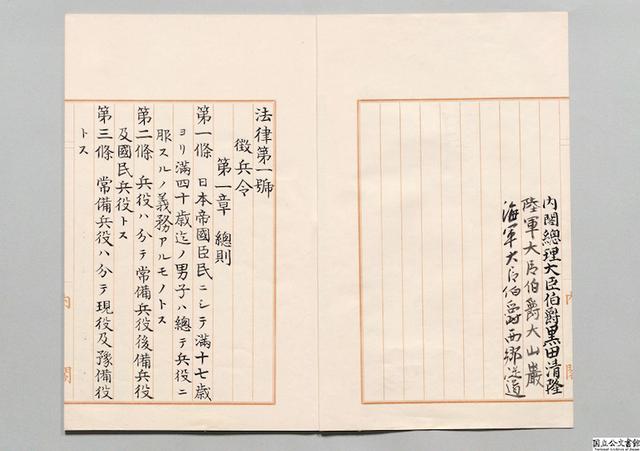 内閣總理大臣伯爵黒田清隆
陸軍大臣伯爵大山巌
海軍大臣伯爵西郷従道
法律第一號
徴兵令
第一章 總則
第一條 日本帝國臣民ニシテ滿十七歳
ヨリ滿四十歳迄ノ男子ハ總テ兵役ニ
服スルノ義務アルモノトス
第二條 兵役ハ分テ常備兵役後備兵役
及國民兵役トス
第三條 常備兵役ハ分テ現役及豫備役
トス
内閣
内閣
国立公文書館
National Archives of Japan